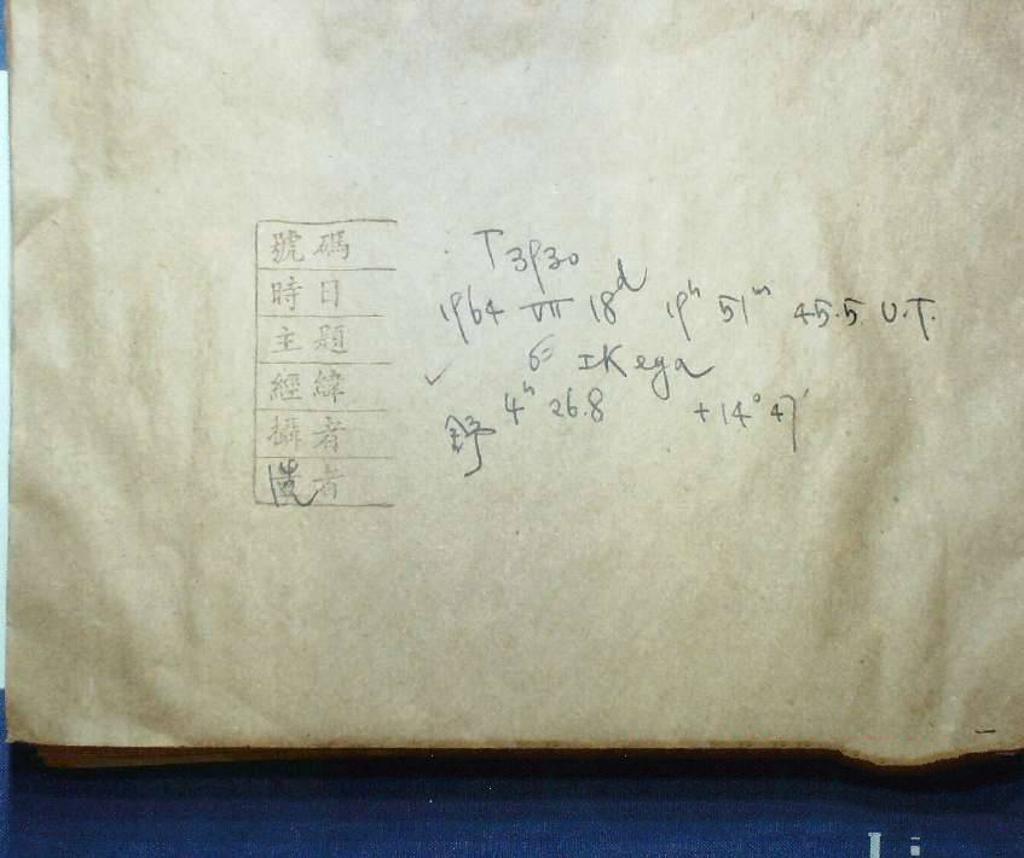 號碼 T3930
時日 1964 VII 18d 19h 51m 45.5 U.T.
主題 IKega
經緯 4h 26.8 +14° 47'
攝者
者